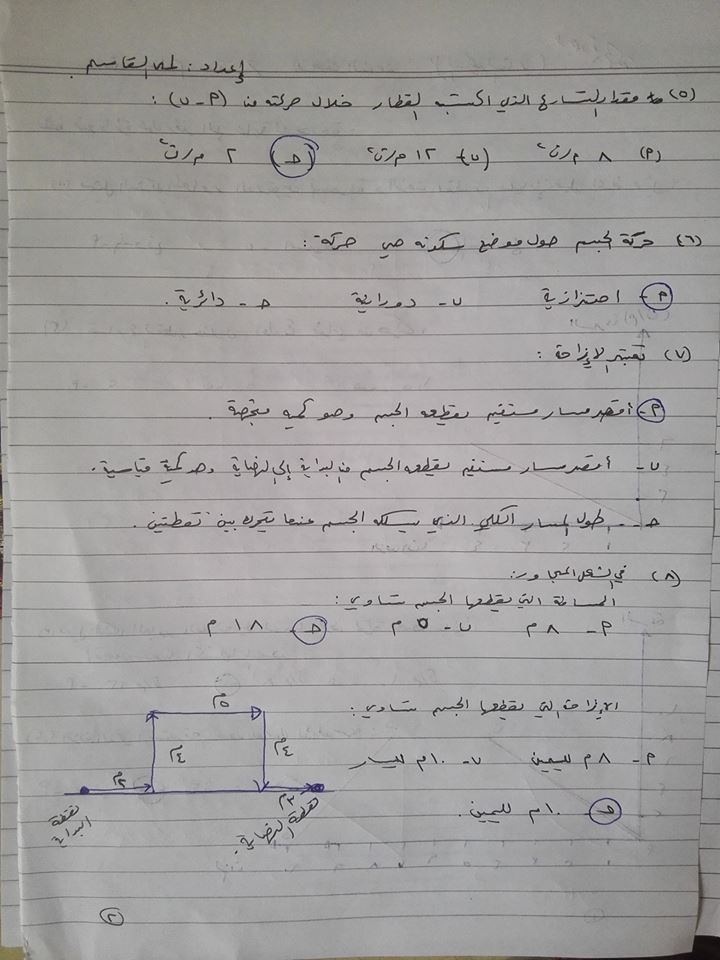 إعداد: لمى القاسم
(٥) مقدار التسارع الذي اكتسبه القطار خلال حركته من (أ-ب):
(أ) ٨ م/ث٢ (ب) ١٢ م/ث٢ (ج) ٢ م/ث٢
(٦) حركة الجسم حول موضع سكونه هي حركة:
أ- اهتزازية ب- دورانية ج- دائرية.
(٧) تعتبر الإزاحة:
أ- أقصر مسار مستقيم يقطعه الجسم وهو كمية متجهة.
ب- أقصر مسار مستقيم يقطعه الجسم من البداية إلى النهاية وهو كمية قياسية.
ج- طول المسار الكلي الذي يسلكه الجسم عندما يتحرك بين نقطتين.
(٨) في الشكل المجاور:
المسافة التي يقطعها الجسم تساوي:
أ- ٨ م ب- ٥ م ج- ١٨ م
الإزاحة التي يقطعها الجسم تساوي:
أ- ٨ م لليمين ب- ١٠ م لليسار
ج- ١٠ م لليمين.
٥م
٤م
٤م
٢م
٣م
نقطة البداية
نقطة النهاية
٢